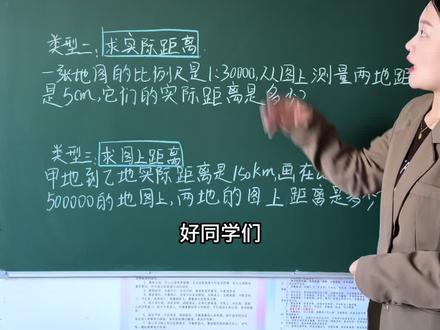 类型二:求实际距离
一张地图的比例尺是1:30000,从图上测量两地距
是5cm,它们的实际距离是多少?
类型三:求图上距离
甲地到乙地实际距离是150km,画在
500000的地图上,两地的图上距离是多少
好同学们